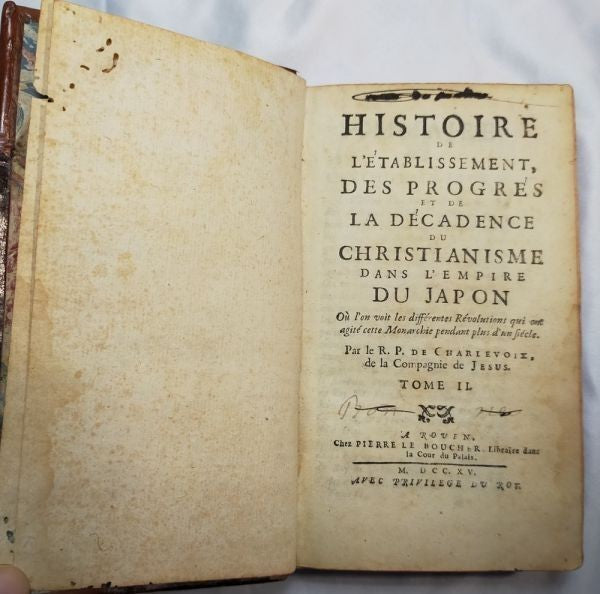 HISTOIRE
DE
L'ÉTABLISSEMENT,
DES PROGRÉS
ET DE
LA DÉCADENCE
DU
CHRISTIANISME
DANS L'EMPIRE
DU JAPON
Où l'on voit les différentes Révolutions qui ont
agité cette Monarchie pendant plus d'un siécle.
Par le R. P. DE CHARLEVOIX,
de la Compagnie de JESUS.
TOME II.
A ROUEN,
Chez PIERRE LE BOUCHER, Libraire dans
la Cour du Palais.
M. DCC. XV.
AVEC PRIVILEGE DU ROY.